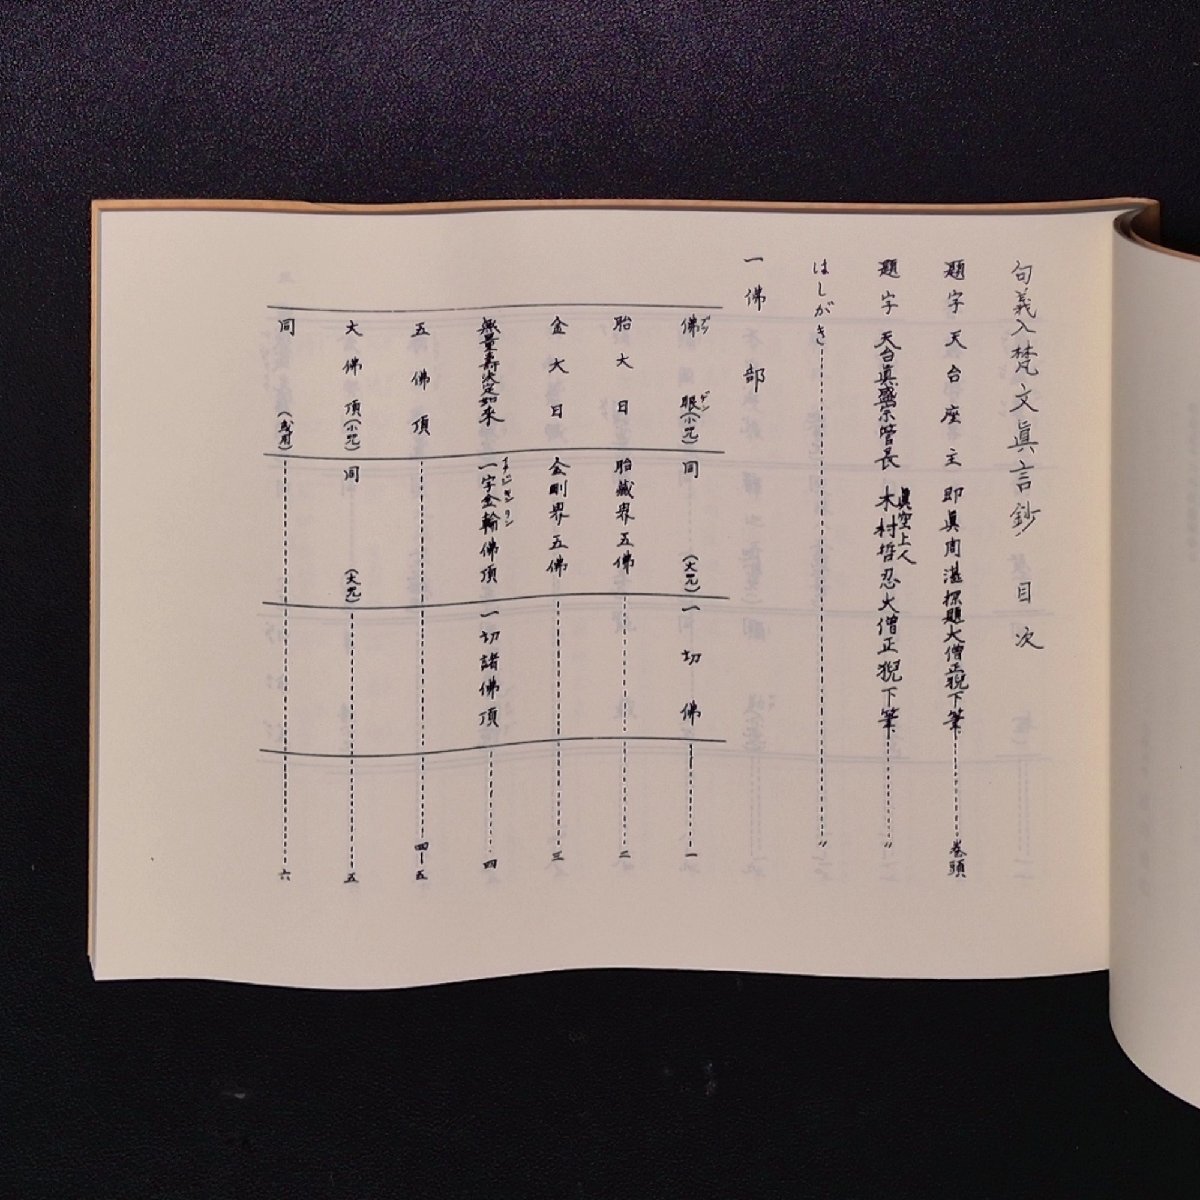 句義入梵文眞言鈔 目次
題字 天台座主 即眞周湛探題大僧正猊下筆 巻頭
題字 天台眞盛宗管長 眞空上人 木村哲忍大僧正猊下筆 〃
はしがき 〃
一 佛部
佛眼(小咒) 同(大咒) 一切佛 一
胎大日 胎藏界五佛 二
金大日 金剛界五佛 三
無量壽決定如来 一字金輪佛頂 一切諸佛頂 四
五佛頂 四―五
大佛頂(小咒) 同(大咒) 五
同(或用) 六